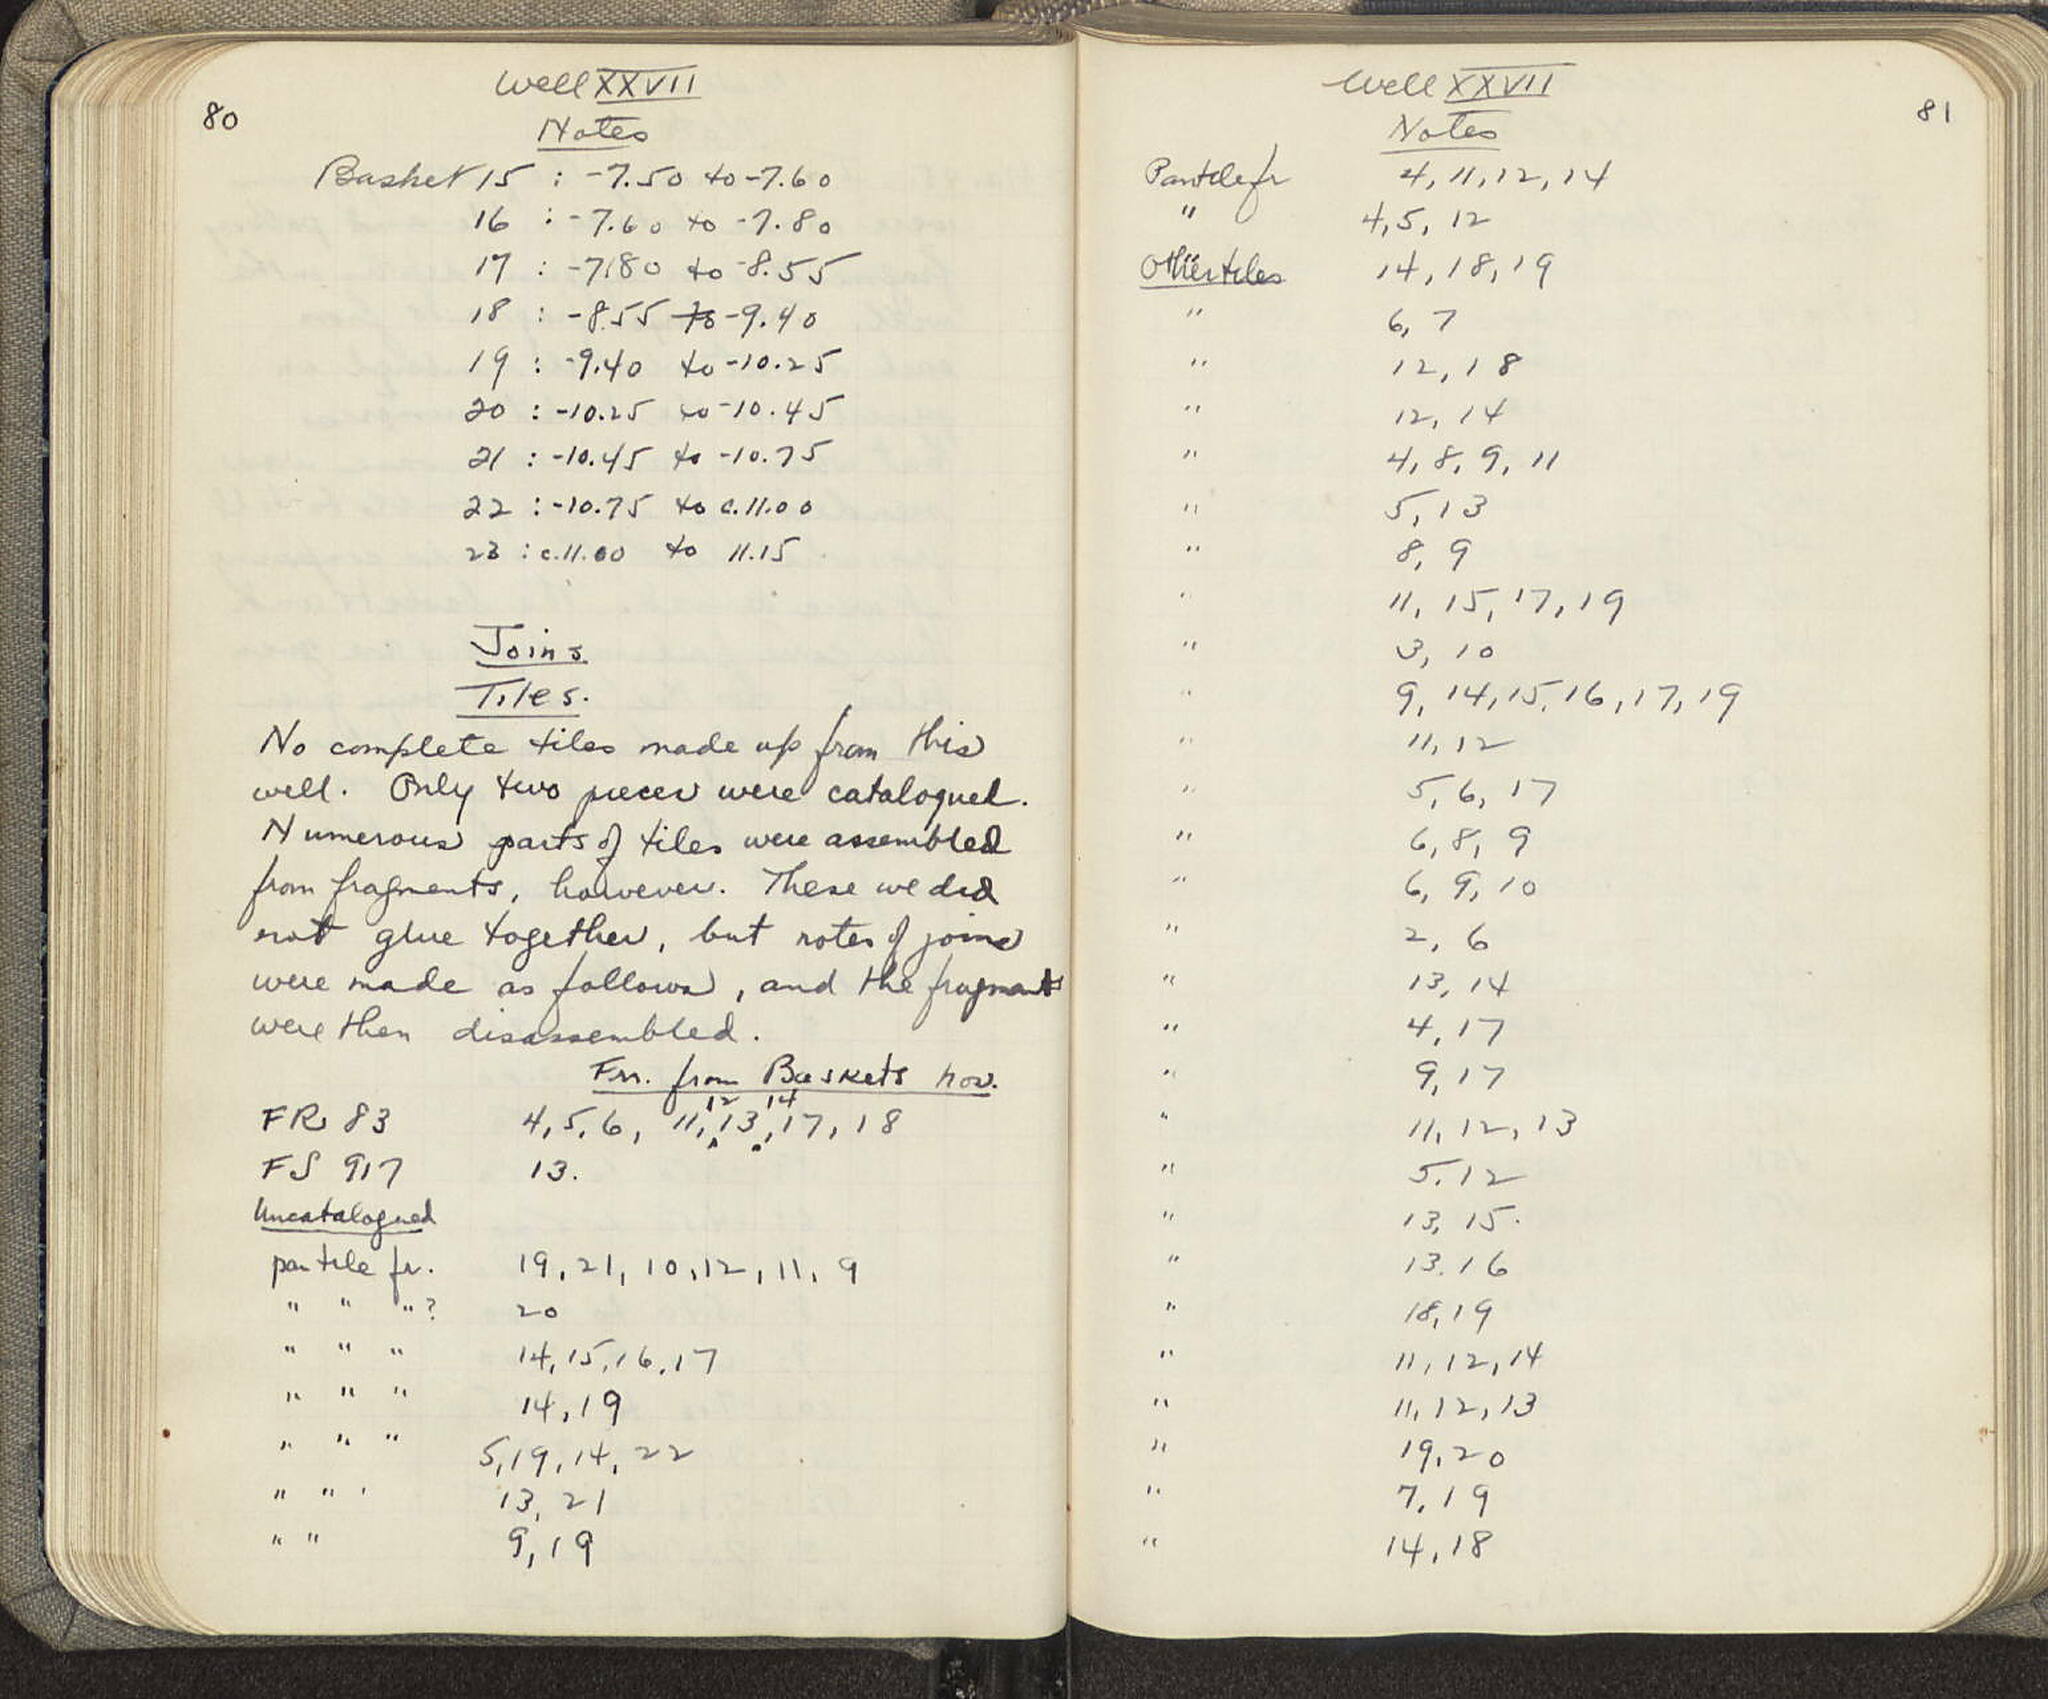 80
Well XXVII
Notes
Basket 15 : -7.50 to -7.60
16 : -7.60 to -7.80
17 : -7.80 to -8.55
18 : -8.55 to -9.40
19 : -9.40 to -10.25
20 : -10.25 to -10.45
21 : -10.45 to -10.75
22 : -10.75 to c.11.00
23 : c.11.00 to 11.15
Joins
Tiles.
No complete tiles made up from this
well. Only two pieces were catalogued.
Numerous parts of tiles were assembled
from fragments, however. These we did
not glue together, but notes of joins
were made as follows, and the fragments
were then disassembled.
Frr. from Baskets nos.
FR 83 4, 5, 6, 11, 12, 13, 14, 17, 18
FS 917 13.
Uncatalogued
pantile fr. 19, 21, 10, 12, 11, 9
" " "? 20
" " " 14, 15, 16, 17
" " " 14, 19
" " " 5, 19, 14, 22
" " ' 13, 21
" " 9, 19
81
Well XXVII
Notes
Pantile fr 4, 11, 12, 14
" 4, 5, 12
Other tiles 14, 18, 19
" 6, 7
" 12, 18
" 12, 14
" 4, 8, 9, 11
" 5, 13
" 8, 9
" 11, 15, 17, 19
" 3, 10
" 9, 14, 15, 16, 17, 19
" 11, 12
" 5, 6, 17
" 6, 8, 9
" 6, 9, 10
" 2, 6
" 13, 14
" 4, 17
" 9, 17
" 11, 12, 13
" 5, 12
" 13, 15.
" 13, 16
" 18, 19
" 11, 12, 14
" 11, 12, 13
" 19, 20
" 7, 19
" 14, 18